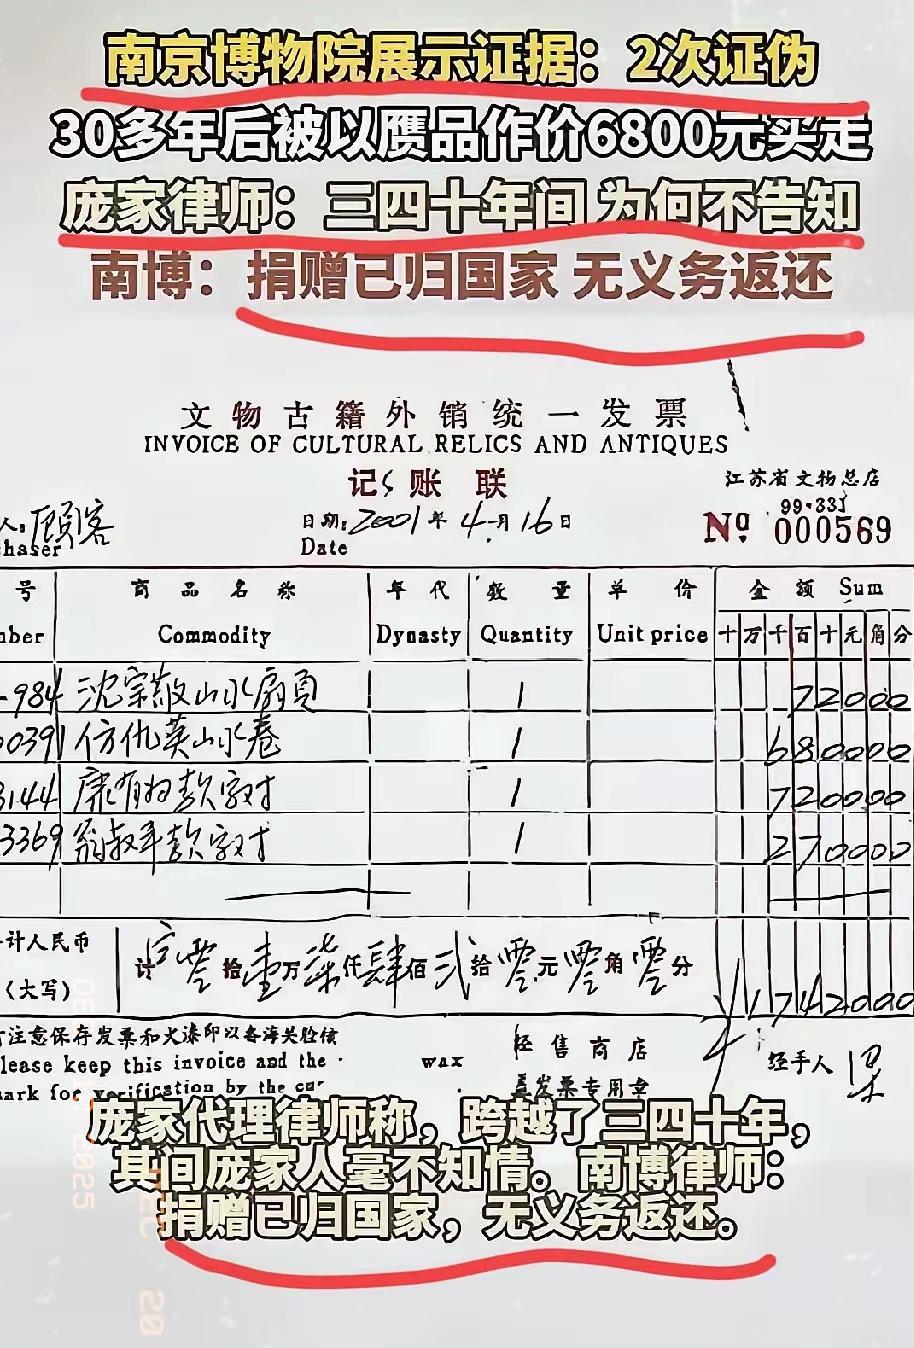 南京博物院展示证据：2次证伪
30多年后被以赝品作价6800元买走
庞家律师：三四十年间 为何不告知
南博：捐赠已归国家 无义务返还
文物古籍外销统一发票
INVOICE OF CULTURAL RELICS AND ANTIQUES
记账联
江苏省文物总店
人: 顾客
日期: 2001年4月16日
Date
99·33J
№ 000569
号 商品名称 年代 数量 单价 金额 Sum
Commodity Dynasty Quantity Unit price 十万千百十元角分
984 沈宗敬山水扇页 1 72000
0391 仿仇英山水卷 1 680000
3144 康有为款字对 1 720000
3369 翁叔平款字对 1 270000
计人民币
(大写)
计 零拾壹万柒仟肆佰贰拾零元零角零分 ¥1742000
注意保存发票和火漆印以备海关检核
lease keep this invoice and the wax
ark for verification by the
经售商店
盖发票专用章
经手人
庞家代理律师称，跨越了三四十年，
其间庞家人毫不知情。南博律师：
捐赠已归国家，无义务返还。